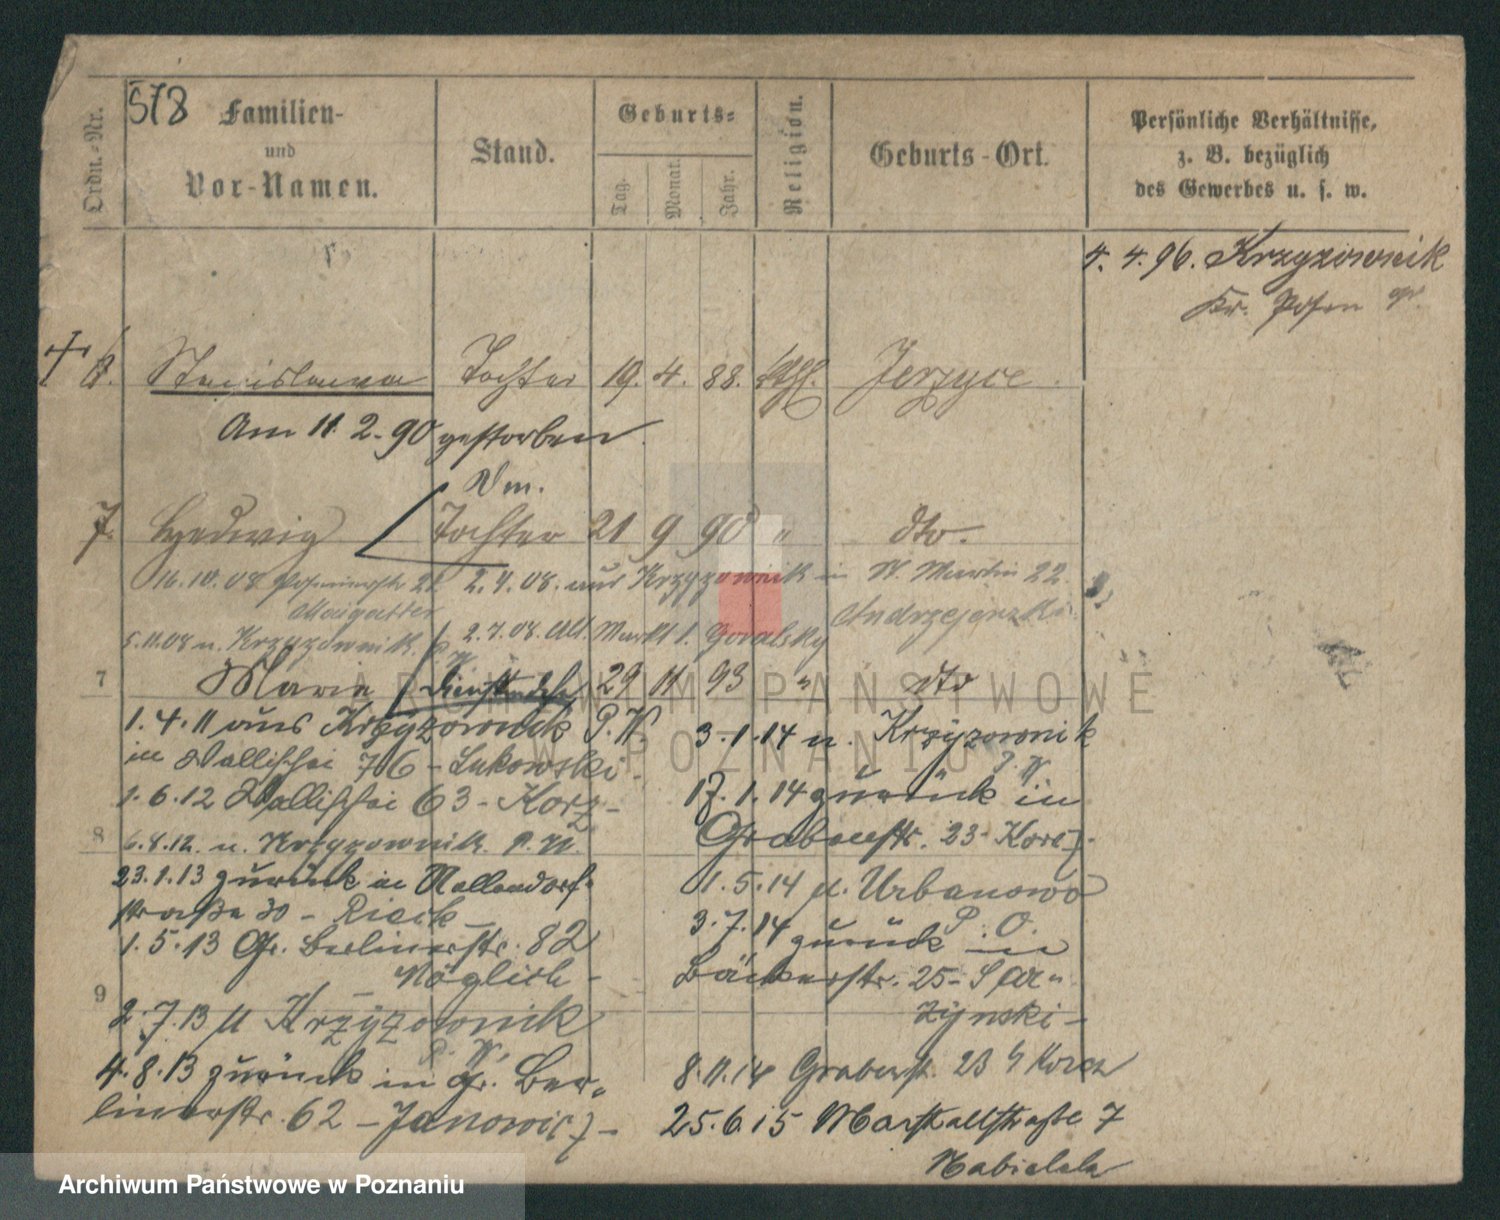 578
Ordn.-Nr.
Familien-
und
Vor-Namen.
Stand.
Geburts-
Tag.
Monat.
Jahr.
Religion.
Geburts-Ort.
Persönliche Verhältnisse,
z. B. bezüglich
des Gewerbes u. s. w.
4. 4. 96. Krzyzownik
Kr. Posen
6. Stanislawa Tochter 19. 4. 88. kth. Jerzyce.
Am 11. 2. 90 gestorben.
Dm.
7. Hedwig Tochter 21 9 90 " dto.
16.10.08 22 2.4.08. aus Krzyzownik in St. Martin 22.
Andrzejewski
5.11.08 n. Krzyzownik. 2.7.08. Alt. Markt 1. Goralsky
7 Maria 29 11 93 " dto
1.4.11 aus Krzyzownick P.W.
in Wallischei 76 - Lukowski.
1.6.12 Wallischei 63 - Korz-
8 6.8.12. n. Krzyzownik. P.W.
23.1.13 zurück in Nollendorf-
straße 30 - Rieck -
1.5.13 Gr. Berlinerstr. 82
Möglich -
9
2.7.13 n Krzyzownik
P. W.
4.8.13 zurück in Gr. Ber-
linerstr. 62 - Janowicz -
3.1.14 n. Krzyzownik
P. W.
17.1.14 zurück in
Grabenstr. 23 - Korcz-
1.5.14 n. Urbanowo
P. O.
3.7.14 zurück in
Bäckerstr. 25 -
zynski -
8.11.14 Grabenst. 23 b/ Korcz
25.6.15 Marstallstraße 7
ARCHIWUM PAŃSTWOWE
W POZNANIU
Archiwum Państwowe w Poznaniu